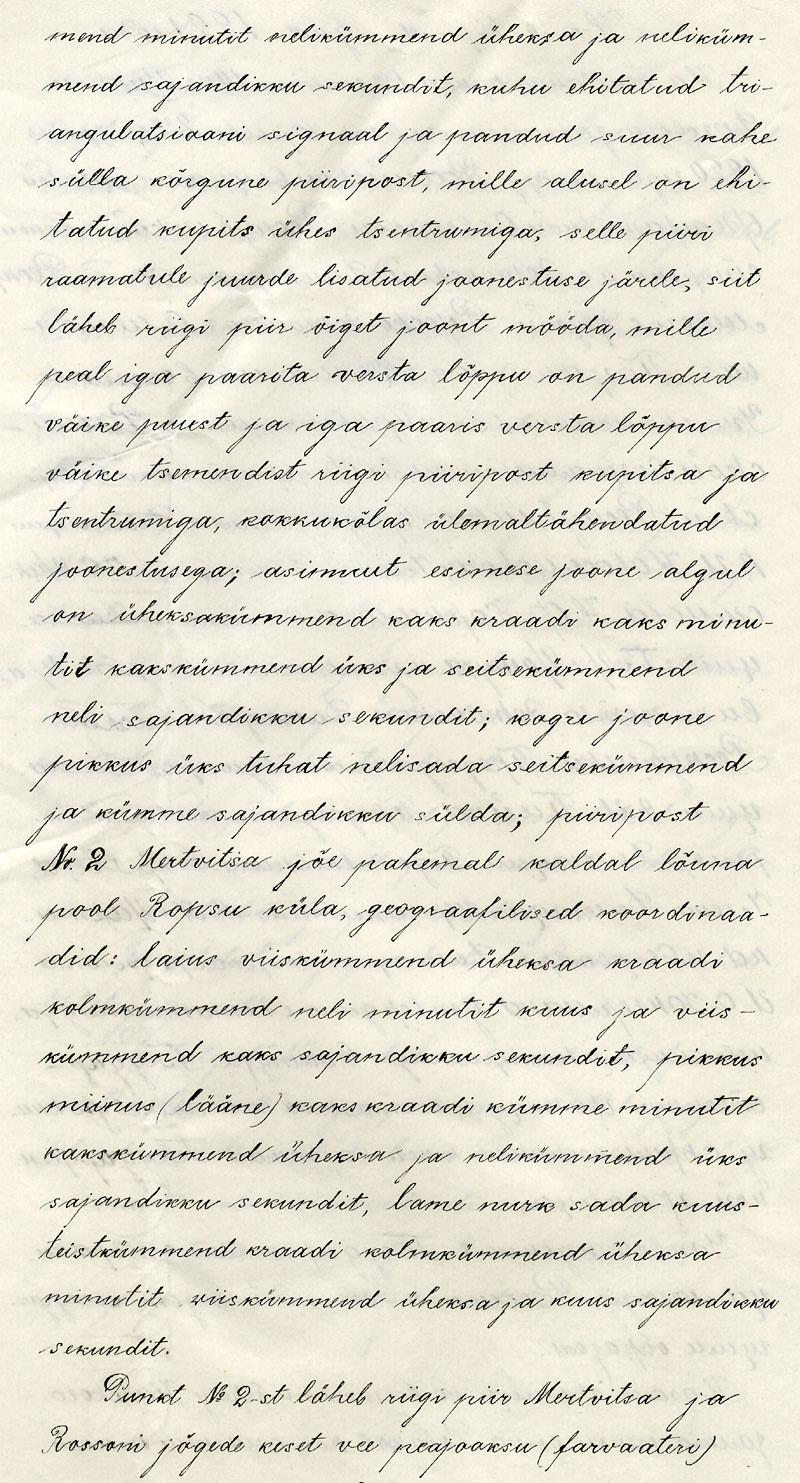 mend minutit nelikümmend üheksa ja neliküm-
mend sajandikku sekundit, kuhu ehitatud tri-
angulatsiooni signaal ja pandud suur kahe
sülla kõrgune piiripost, mille alusel on ehi-
tatud kupits ühes tsentrumiga, selle piiri
raamatule juurde lisatud joonestuse järele, siit
läheb riigi piir õiget joont mööda, mille
peal iga paarita versta lõppu on pandud
väike puust ja iga paaris versta lõppu
väike tsemendist riigi piiripost kupitsa ja
tsentrumiga, kokkukõlas ülemaltähendatud
joonestusega; asimuut esimese joone algul
on üheksakümmend kaks kraadi kaks minu-
tit kakskümmend üks ja seitsekümmend
neli sajandikku sekundit; kogu joone
pikkus üks tuhat nelisada seitsekümmend
ja kümme sajandikku sülda; piiripost
Nr. 2 Mertvitsa jõe pahemal kaldal lõuna
pool Ropsu küla, geograafilised koordinaa-
did: laius viiskümmend üheksa kraadi
kolmkümmend neli minutit kuus ja viis-
kümmend kaks sajandikku sekundit, pikkus
miinus (lääne) kaks kraadi kümme minutit
kakskümmend üheksa ja nelikümmend üks
sajandikku sekundit, lame nurk sada kuus-
teistkümmend kraadi kolmkümmend üheksa
minutit viiskümmend üheksa ja kuus sajandikku
sekundit.
Punkt № 2-st läheb riigi piir Mertvitsa ja
Rossoni jõgede keset vee peajooksu (farvaateri)